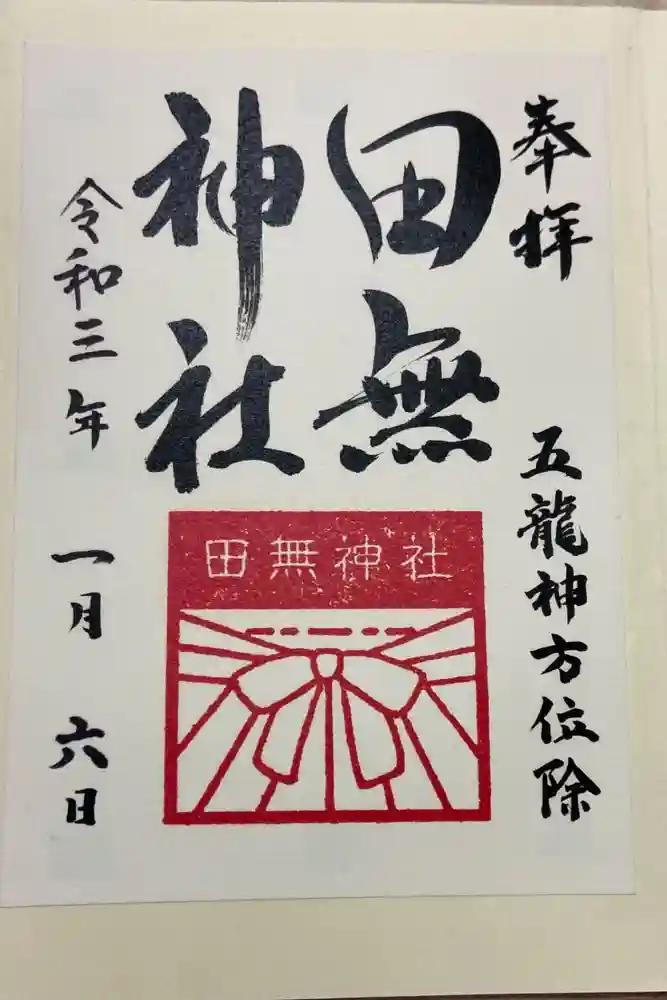 奉拝
五龍神方位除
田無
神社
田無神社
令和三年
一月
六日